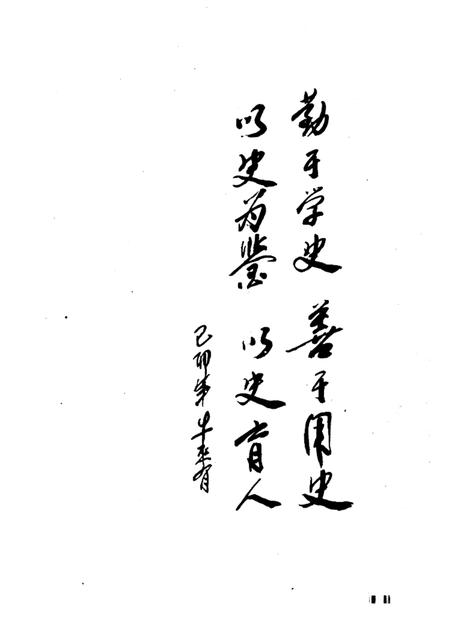 勤于学史 善于用史
以史为鉴 以史育人
己卯年 牛来有